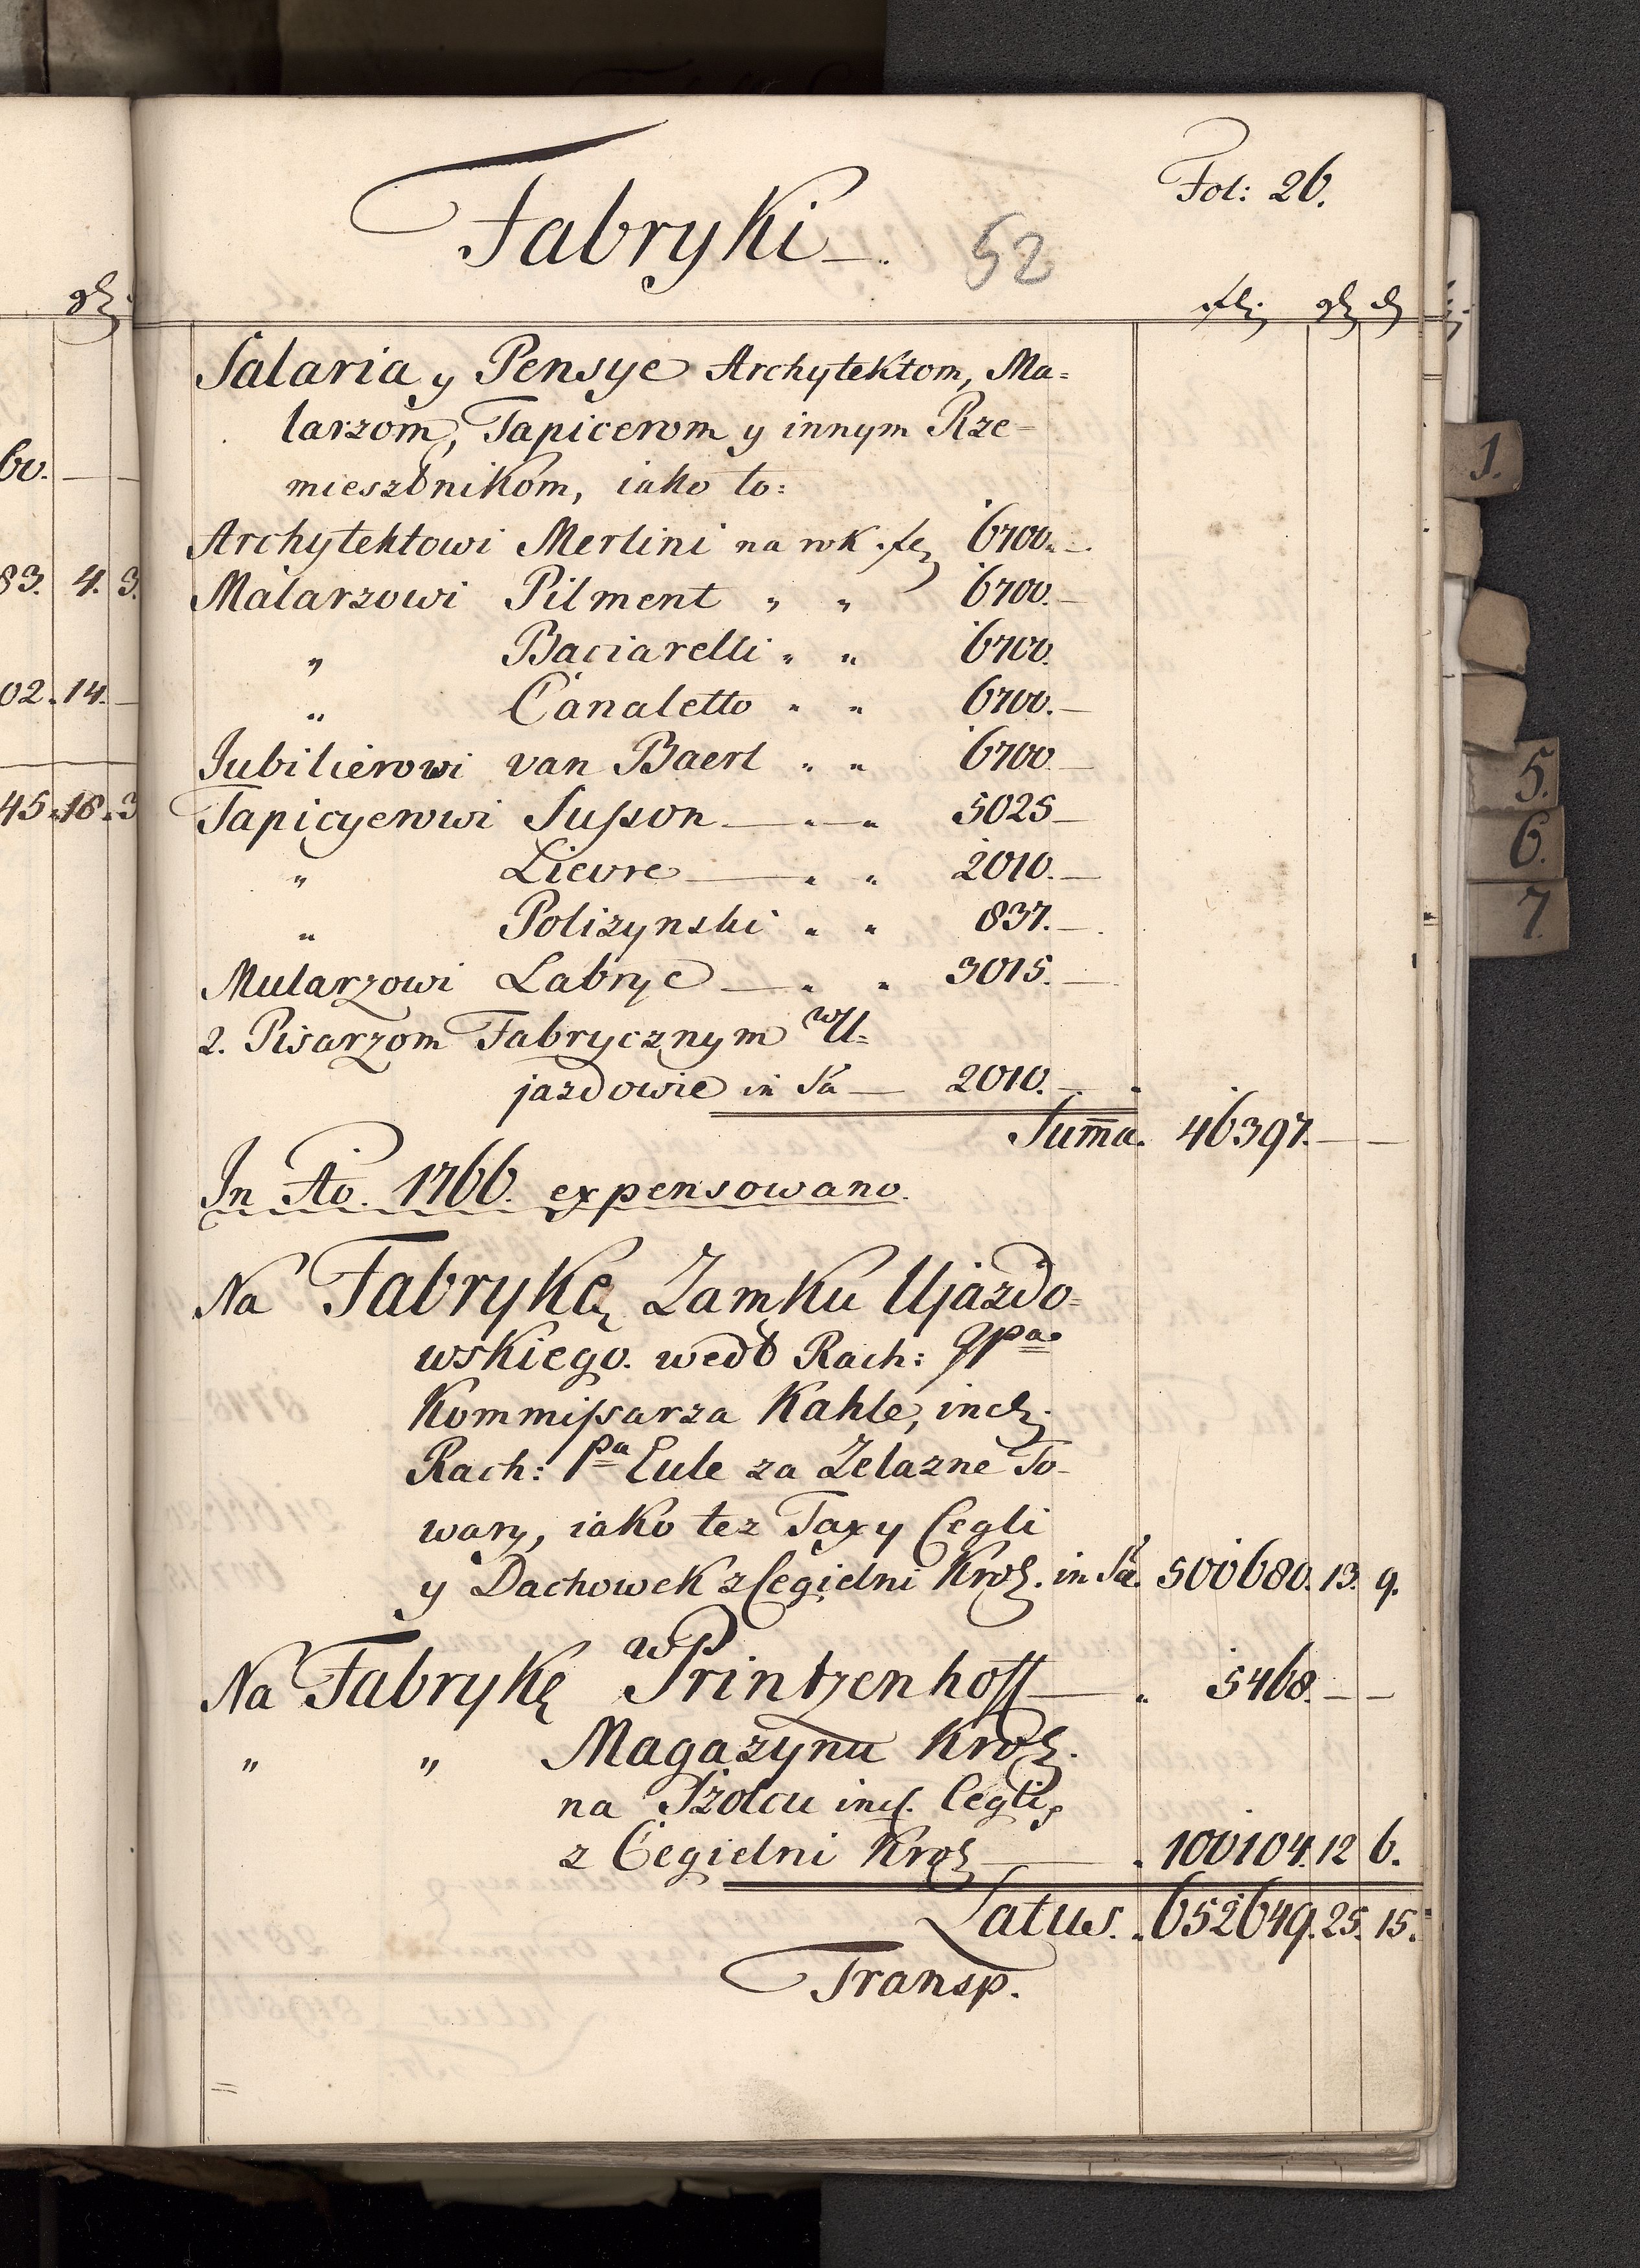 Fabryki
52
Fol: 26.
fl: gl d
Salaria y Pensye Archytektom, Ma=
larzom, Tapicerom y innym Rze=
mieszłnikom, iako to:
Archytektowi Merlini na rok fl. 6700.
Malarzowi Pilment " " 6700.
" Baciarelli " " 6700.
" Canaletto " " 6700.
Jubilierowi van Baerl " " 6700
Tapicyerowi Susson " " 5025
" Lievre " " 2010.
" Polizynski " " 837.
Mularzowi Labryc " " 3015.
2. Pisarzom Fabrycznym w U=
jazdowie in Sa 2010.
Suma. 46397.
In Ao. 1766. expensowano.
Na Fabrykę Zamku Ujazdo=
wskiego. wedł Rach: JPa
Kommissarza Kahle, incl:
Rach: Pa Eule za Zelazne To-
wary, iako tez Taxy Cegli
y Dachowek z Cegielni Krol. in Sa. 500680. 13. 9.
Na Fabrykę w Printzenhoff 5468.
" " Magazynu Krol.
na Szolcu incl. Cegli,
z Cegielni Krol 100104. 12 6.
Latus. 652649. 25. 15.
Transp.
gl.
60.
83. 4. 3.
02. 14.
45. 18. 3
1.
5.
6.
7.